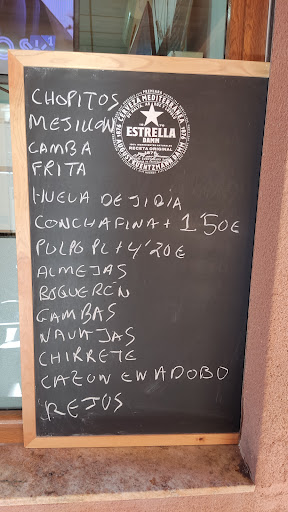 CHOPITOS
MEJILLON
CAMBA
FRITA
HUEVA DE JIDIA
CONCHAFINA + 1'50€
PULPO PL + 4'20€
ALMEJAS
BOGUERÓN
GAMBAS
NAVAJAS
CHIKRETE
CAZON EN ADOBO
REJOS
CERVEZA MEDITERRÁNEA
1876
ESTRELLA
DAMM
RECETA ORIGINAL
1876
AUGUST KUENTZMANN DAMM